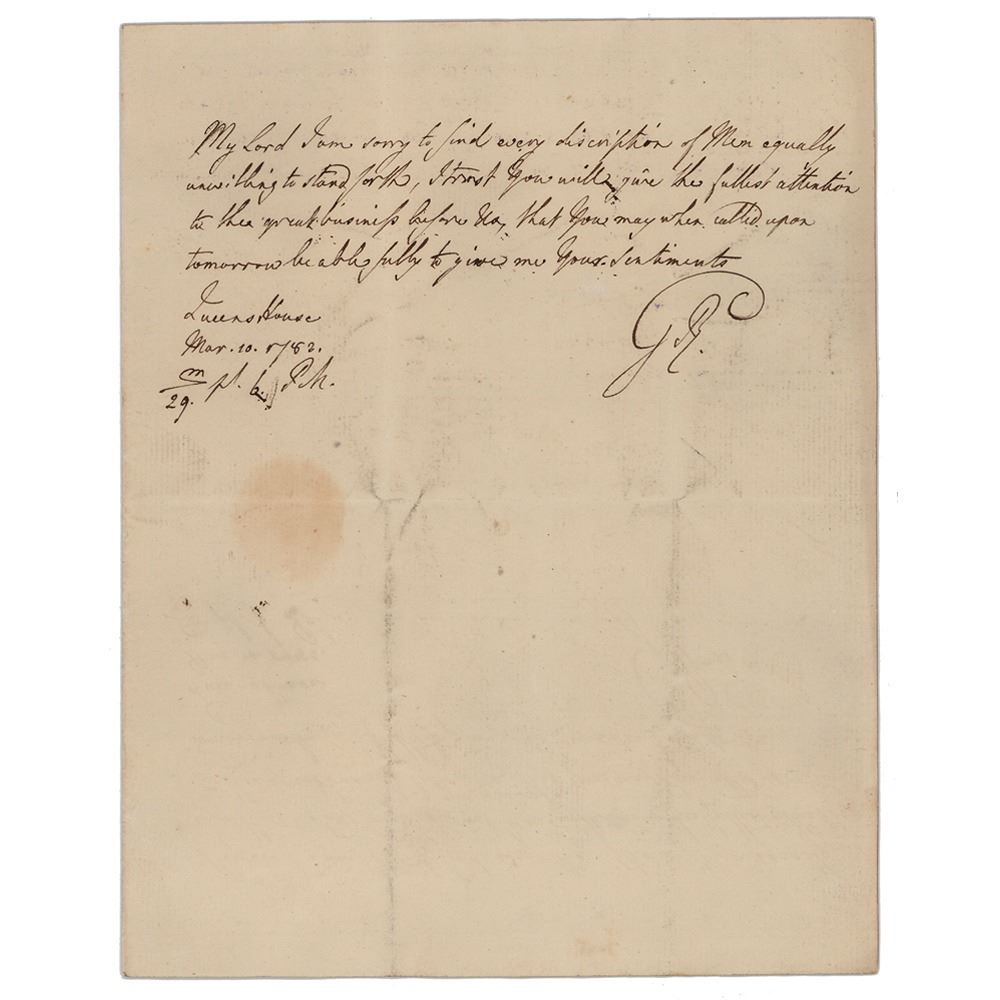 My Lord I am sorry to find every discription of Men equally
unwilling to stand forth, I trust You will give the fullest attention
to the great business before Us, that You may when called upon
tomorrow be able fully to give me Your Sentiments
Queens House
Mar. 10. 1782.
m/29. pt. 6. P.M.
GR